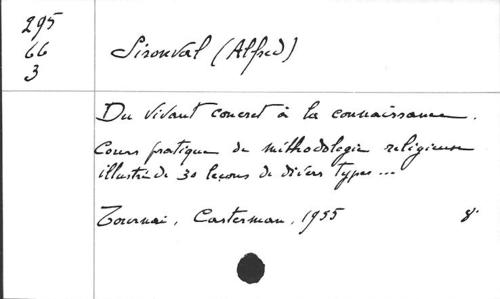 295
66
3
Sironval (Alfred)
Du vivant concret à la connaissance.
Cours pratique de méthodologie religieuse
illustré de 30 leçons de divers types...
Tournai, Casterman, 1955 8°